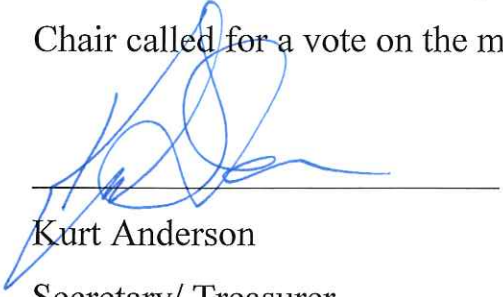 Chair called for a vote on the m
Kurt Anderson
Secretary/ Treasurer